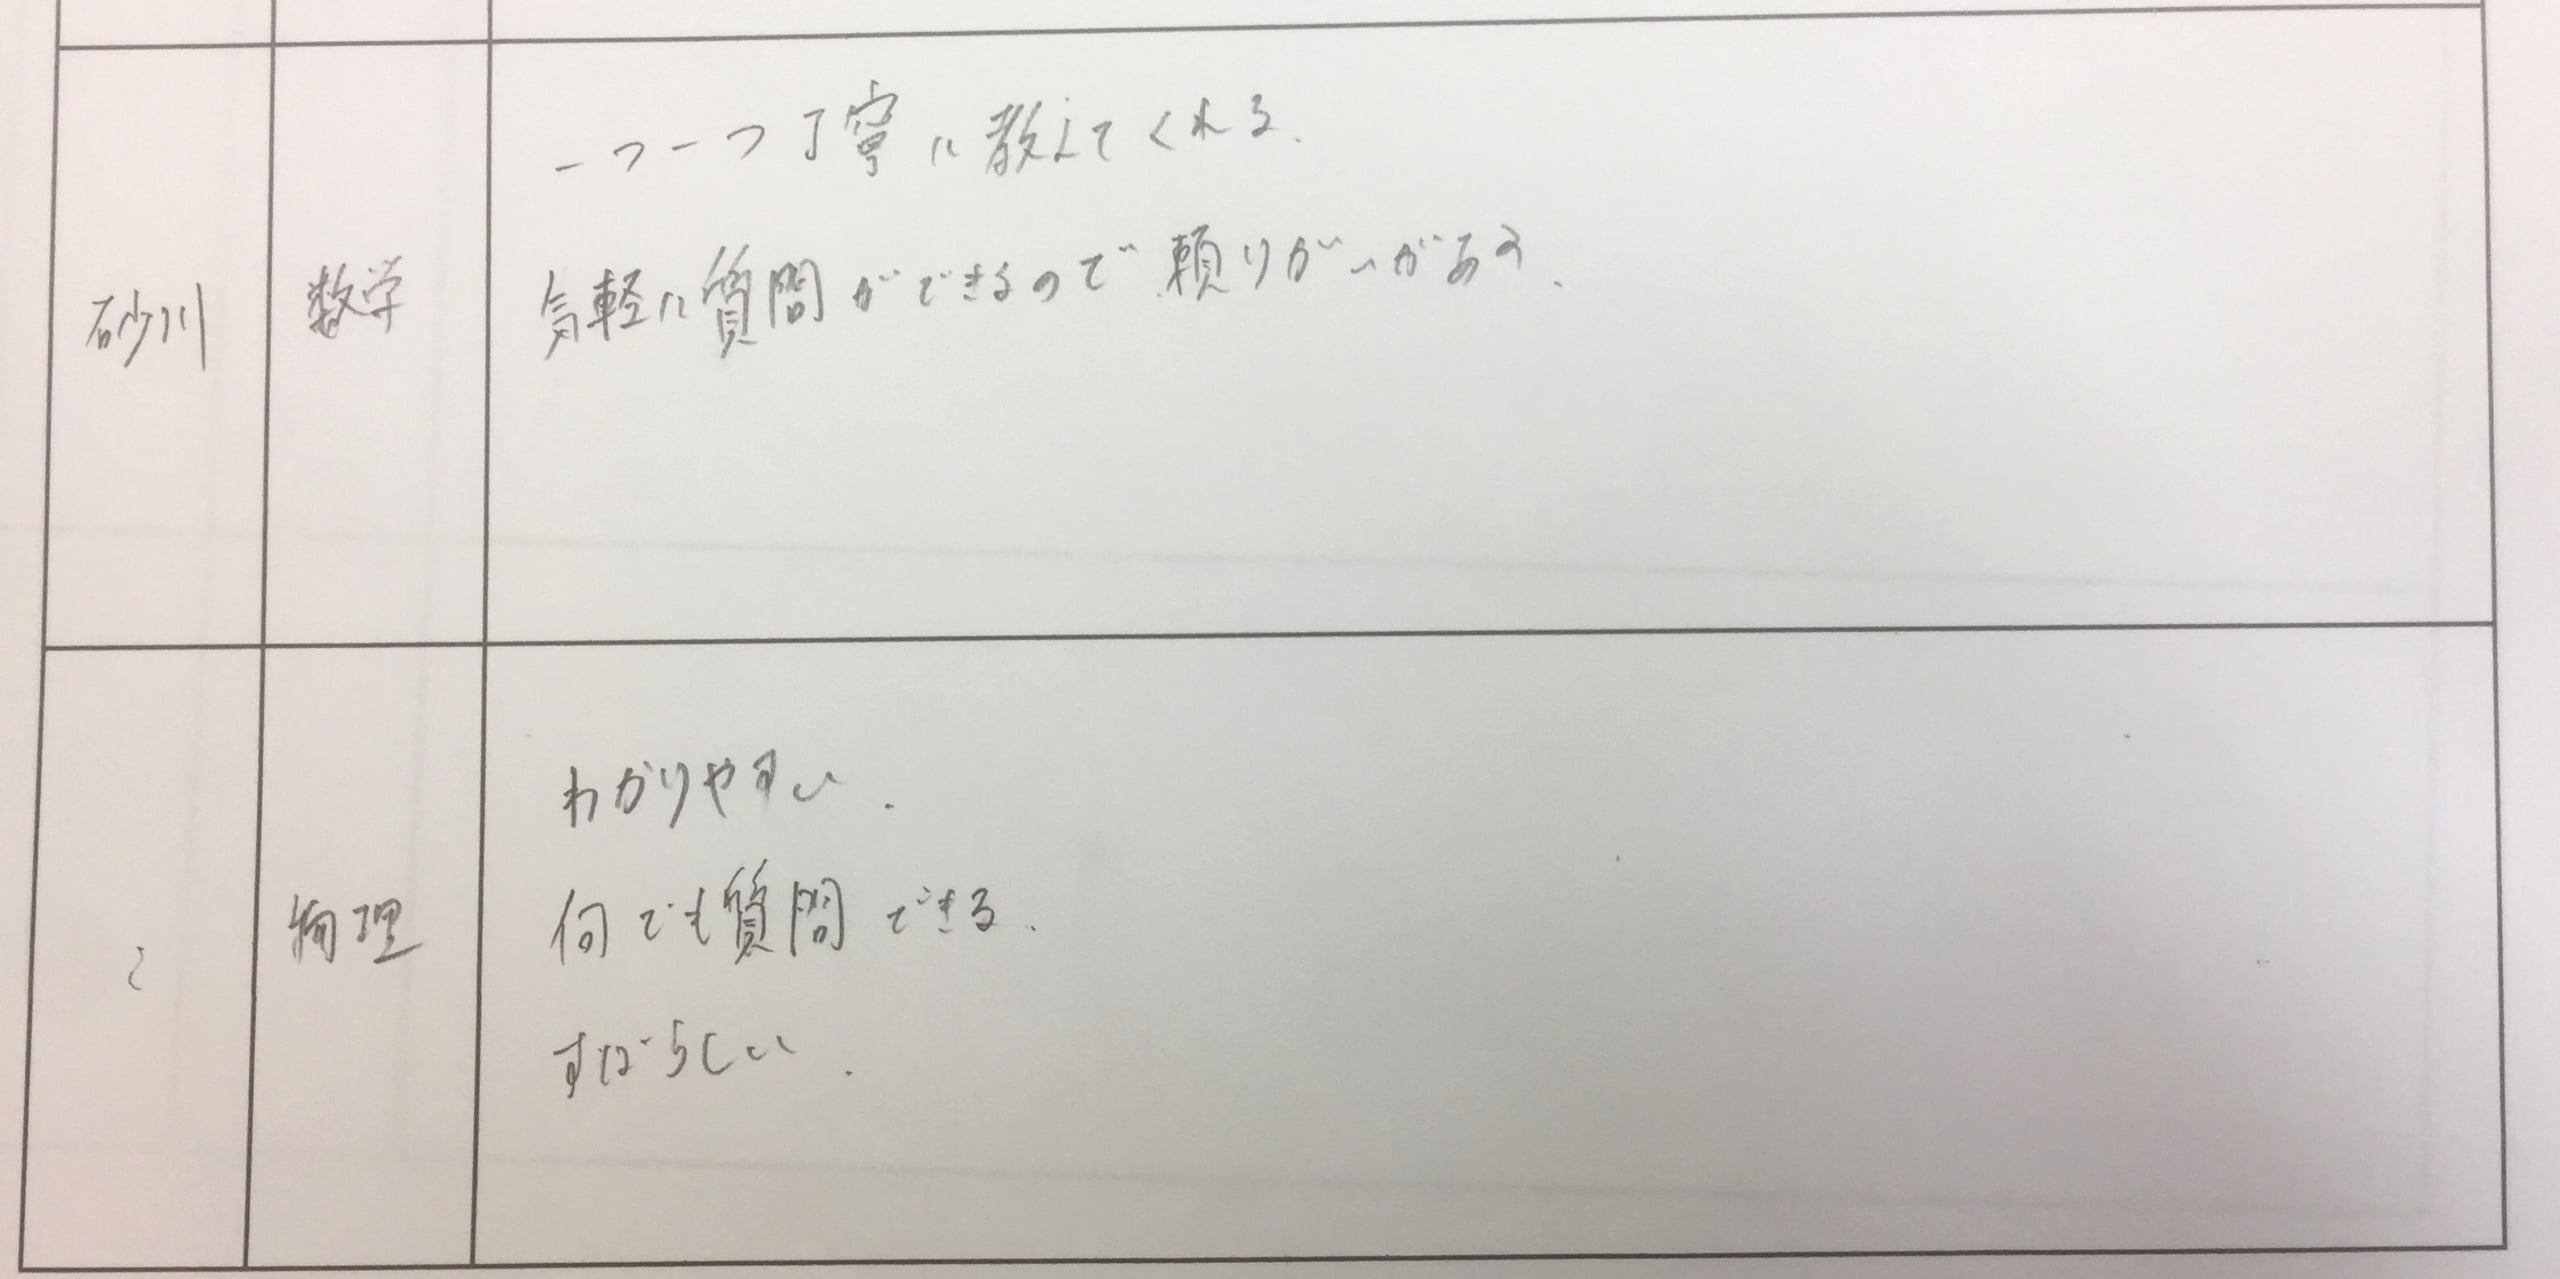 一つ一つ丁寧に教えてくれる.
気軽に質問ができるので頼りがいがある.
砂川
数学
わかりやすい.
何でも質問できる.
すばらしい.
〃
物理